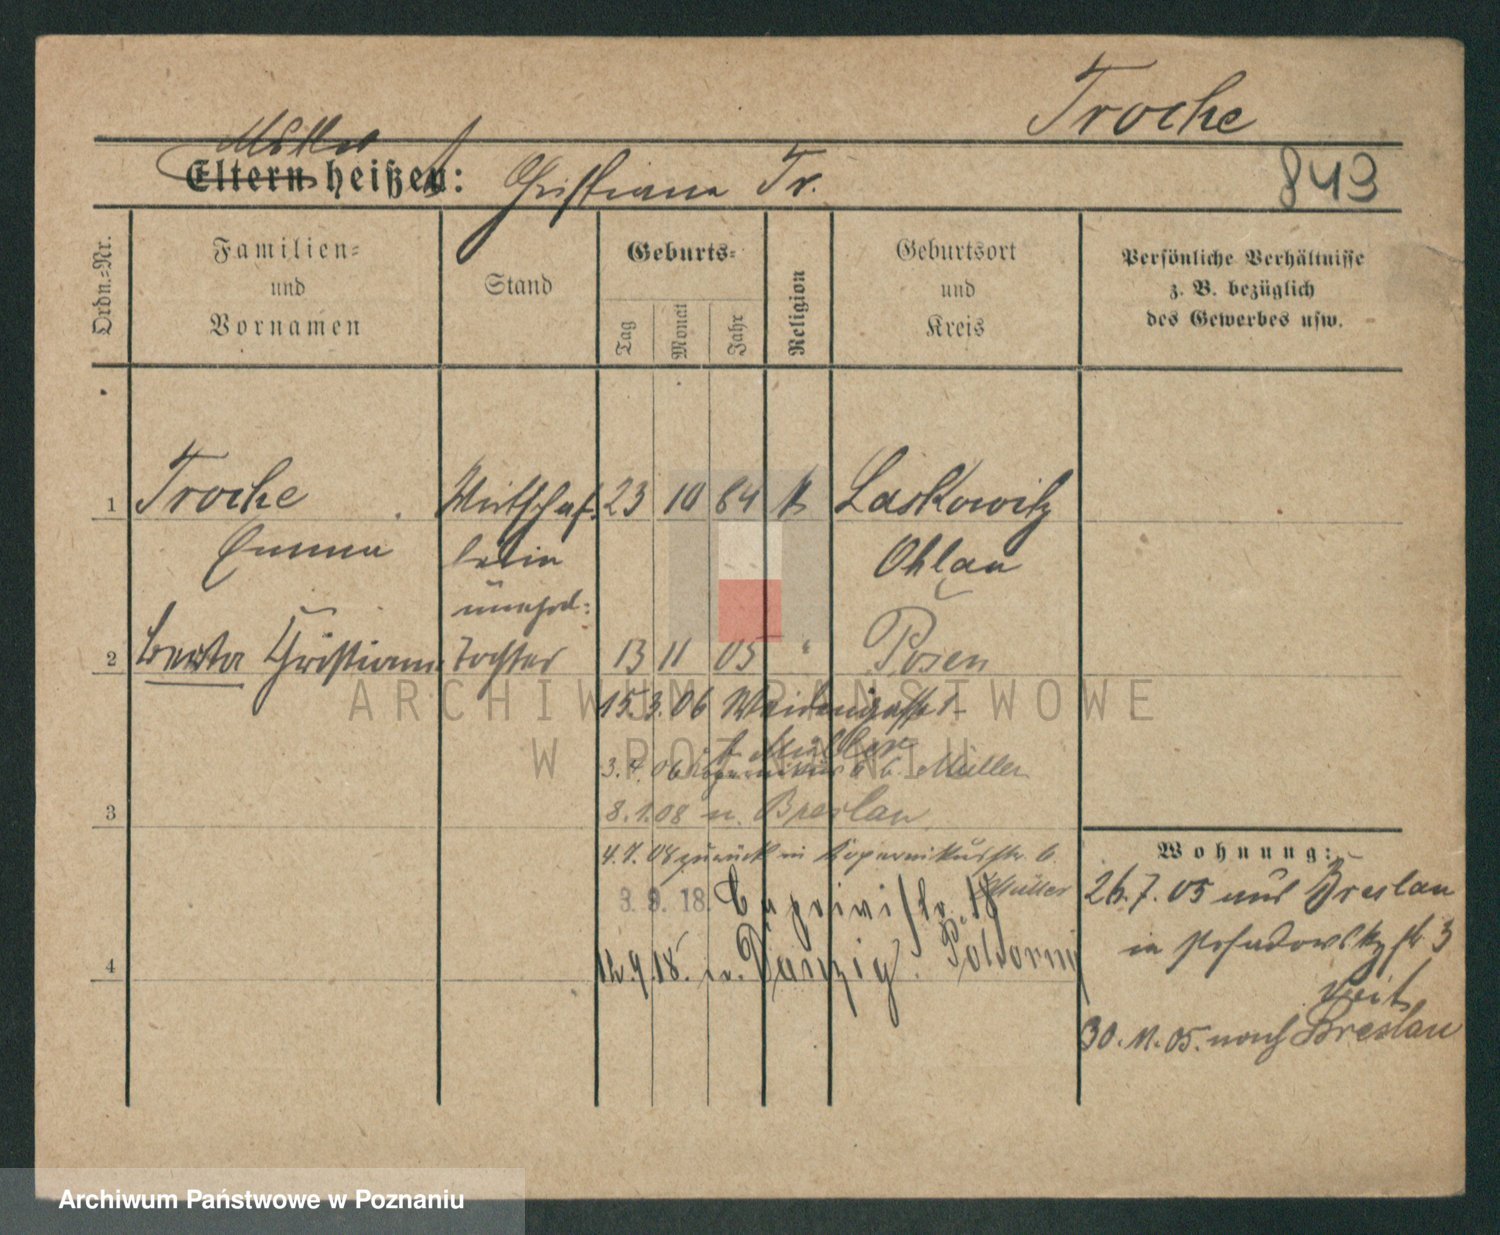 Troche
Mutter
Eltern heißen: Christiana Tr.
843
Ordn.=Nr.
Familien=
und
Vornamen
Stand
Geburts=
Tag
Monat
Jahr
Religion
Geburtsort
und
Kreis
Persönliche Verhältnisse
z. B. bezüglich
des Gewerbes usw.
1 Troche Wirtschaf= 23 10 84 Laskowitz
Emma terin Ohlau
unehel:
2 Berta Christiana Tochter 13 11 05 " Posen
15.3.06 Weidengasse 1
b. Müller
3. 06 Kopernikus 6 b. Müller
3
8.1.08 n. Breslau
4.7.08 zurück in Kopernikusstr. 6
Müller
3. 9. 18. Caprivistr. 18
4
12.9.18. n. Danzig.
Wohnung:
26.7.05 aus Breslau
in Posadowskystr. 3
Veit
30.11.05. nach Breslau
ARCHIWUM PAŃSTWOWE
W POZNANIU
Archiwum Państwowe w Poznaniu